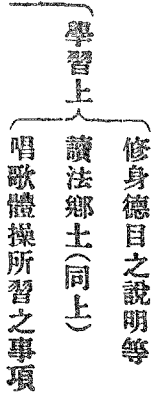 學習上
修身德目之說明等
讀法鄉土(同上)
唱歌體操所習之事項